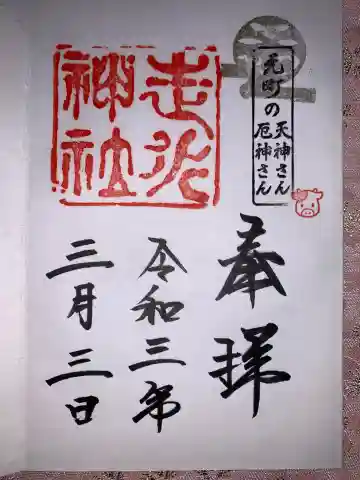 元町の
天神さん
厄神さん
奉拝
走水
神社
令和三年
三月三日